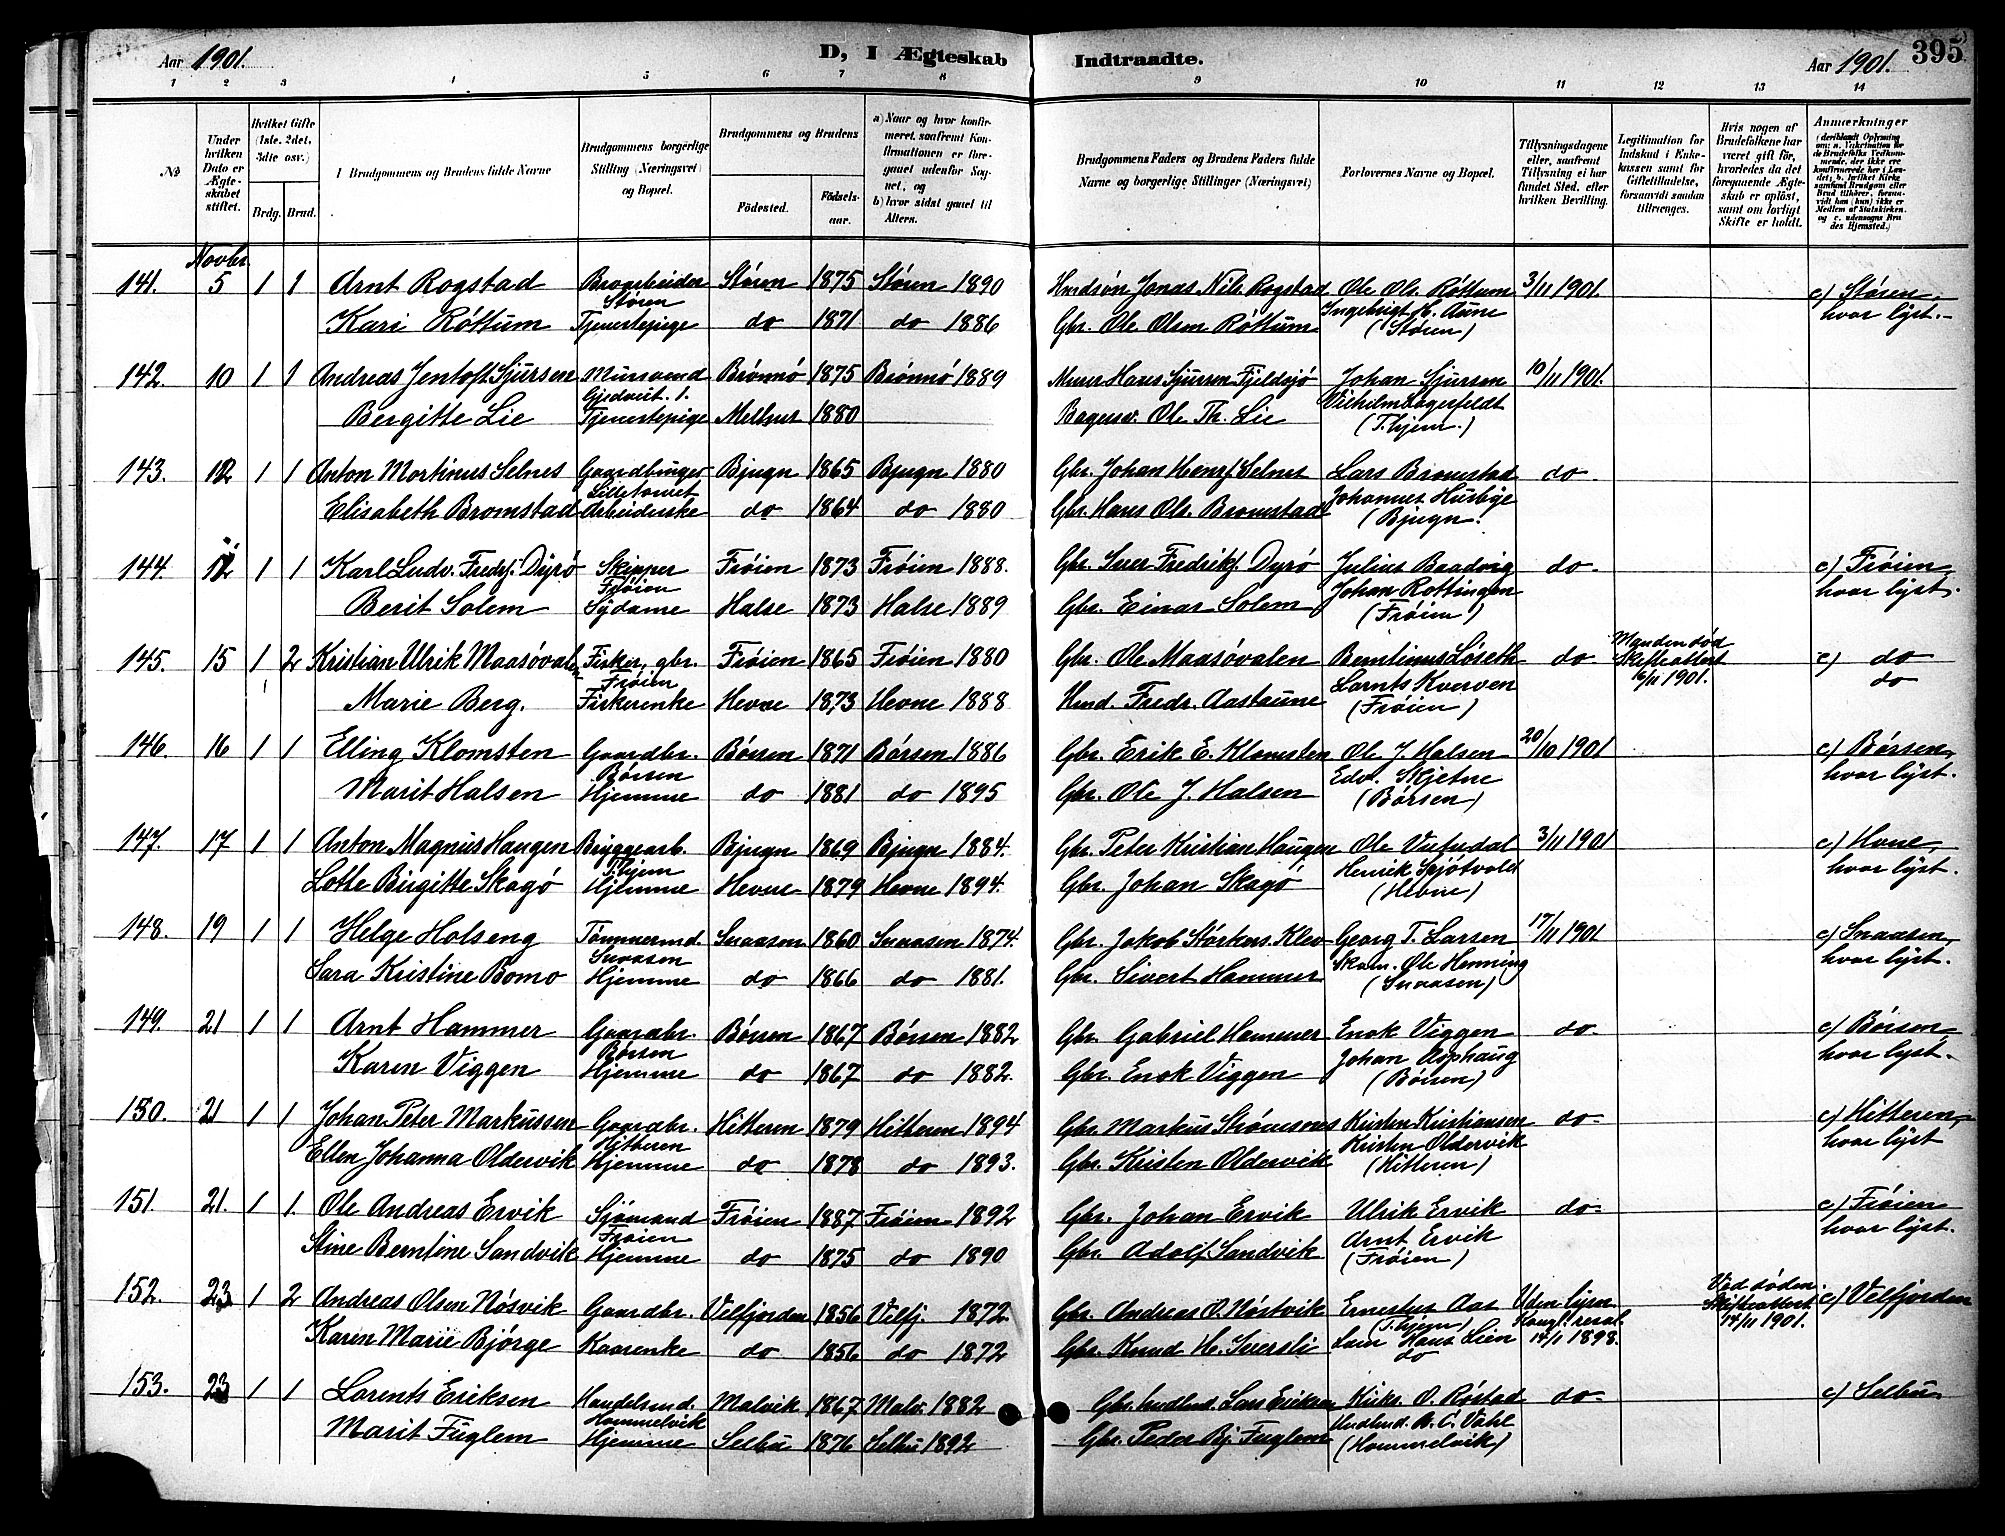 Aar 1901.
D, I Ægteskab Indtraadte.
Aar 1901.
395
1 2 3 4 5 6 7 8 9 10 11 12 13 14
No
Under hvilken Dato er Ægteskabet stiftet.
Hvilket Gifte (1ste. 2det, 3die osv.)
Brdg. Brud.
Brudgommens og Brudens fulde Navne
Brudgommens borgerlige Stilling (Næringsvei) og Bopæl.
Brudgommens og Brudens
Födested.
Födselsaar.
a) Naar og hvor konfirmeret, saafremt Konfirmationen er foregaaet udenfor Sognet, og
b) hvor sidst gaaet til Alters.
Brudgommens Faders og Brudens Faders fulde Navne og borgerlige Stillinger (Næringsvei)
Forlovernes Navne og Bopæl.
Tillysningsdagene eller, saafremt Tillysning ei har fundet Sted, efter hvilken Bevilling.
Legitimation for Indskud i Enkekassen samt for Giftetilladelse, forsaavidt saadan tiltrænges.
Hvis nogen af Brudefolkene har været gift för, hvorledes da det foregaaende Ægteskab er oplöst, samt om lovligt Skifte er holdt.
Anmærkninger
Novbr.
141. 5 1 1 Arnt Rogstad Støren 1875 Støren 1890 Jonas Nils Rogstad Ole Ols. Röttum 3/11 1901. c) Støren,
Støren Ingebrigt H. Aune hvor lyst.
Kari Röttum Tjenestepige do 1871 do 1886 Gbr. Ole Olsen Röttum (Støren)
142. 10 1 1 Andreas Jentoft Sjursen Mursvend Brönnö 1875 Brönnö 1889 Murer Hans Sjursen Fjeldsjö Johan Sjursen 10/11 1901.
Bergitte Lie Tjenestepige Melhus 1880 Ole Th. Lie (T.hjem.)
143. 12 1 1 Anton Mortinus Selnes Gaardbruger Bjugn 1865 Bjugn 1880 Gbr. Johan Henr. Selnes Lars Bromstad do
Johannes Husbye
Elisabeth Bromstad Arbeiderske do 1864 do 1880 Gbr. Hans Ols. Bromstad (Bjugn.
144. 12 1 1 Karl Ludv. Fredrf. Dyrö Skipper Frøien 1873 Frøien 1888. Gbr. Iver Fredrikf. Dyrö Julius Baadvig do c) Frøien,
Frøien Johan Rottingen hvor lyst.
Berit Solem Sydame Halse 1873 Halse 1889 Gbr. Einar Solem (Frøien)
145. 15 1 2 Kristian Ulrik Maasövalen Fisker, gbr. Frøien 1865 Frøien 1880 Gbr. Ole Maasövalen Berntinus Löseth do Manden död Skifteattest 16/11 1901. c) do
Frøien Kverven do
Marie Berg. Fiskerenke Hevne 1873 Hevne 1888 Fredr. Aastaune (Frøien)
146. 16 1 1 Elling Klomsten Gaardbr. Börsen 1871 Börsen 1886 Gbr. Erik E. Klomsten Ole J. Halsen 20/10 1901 c) Börsen,
Börsen Edv. Skjetne hvor lyst.
Marit Halsen Hjemme do 1881 do 1895 Gbr. Ole J. Halsen (Börsen)
147. 17 1 1 Anton Magnus Haugen Bryggearb. Bjugn 1869 Bjugn 1884. Gbr. Peter Kristian Haugen Ole Vuttudal 3/11 1901 c) Hevne,
T.hjem Henrik Sjötvold hvor lyst.
Lotte Birgitte Skagö Hjemme Hevne 1879 Hevne 1894. Gbr. Johan Skagö (Hevne)
148. 19 1 1 Helge Holseng Tömmermd. Snaasen 1860 Snaasen 1874. Gbr. Jakob Störkers. Klev Georg T. Larsen 17/11 1901 c) Snaasen,
Snaasen Ole Henning hvor lyst.
Sara Kristine Bomo Hjemme do 1866 do 1881. Gbr. Sivert Hammer (Snaasen)
149. 21 1 1 Arnt Hammer Gaardbr. Börsen 1867 Börsen 1882 Gbr. Gabriel Hammer Enok Viggen do c) Börsen,
Börsen Johan Asphaug hvor lyst.
Karen Viggen Hjemme do 1867 do 1882. Gbr. Enok Viggen (Börsen)
150. 21 1 1 Johan Peter Markussen Gaardbr. Hitteren 1879 Hitteren 1894 Gbr. Markus Strömsnes Kristen Kristiansen do c) Hitteren,
Hitteren Kristen Oldervik hvor lyst
Ellen Johanna Oldervik Hjemme do 1878 do 1893. Gbr. Kristen Oldervik (Hitteren)
151. 21. 1 1. Ole Andreas Ervik Sjömand Frøien 1887 Frøien 1892 Gbr. Johan Ervik Ulrik Ervik do c) Frøien
Frøien Arnt Ervik hvor lyst.
Stine Berntine Sandvik Hjemme do 1875 do 1890 Gbr. Adolf Sandvik (Frøien)
152. 23 1 2 Andreas Olsen Nösvik Gaardbr. Velfjorden 1856 Velfj. 1872. Gbr. Andreas O. Nöstvik Ernestus Aas Uden lysn. Ved döden. Skifteattest 14/11 1901. c) Velfjorden
(T.hjem) Kongl. resol.
Karen Marie Bjørge Kaarenke do 1856 do 1872 Gbr. Knud H. Iversli Hans Lien 14/1 1898.
do
153. 23 1 1 Lorents Eriksen Handelsmd. Malvik 1867 Malv. 1882 Gbr. Lars Eriksen Kirks. O. Röstad do c) Selbu
Hommelvik A. C. Vahl
Marit Fuglem Hjemme Selbu 1876 Selbu 1892 Gbr. Peder Bj. Fuglem (Hommelvik)